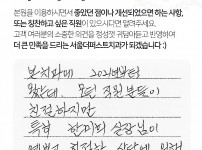 본원을 이용하시면서 좋았던 점이나 개선되었으면 하는 사항,
또는 칭찬하고 싶은 직원이 있으시다면 알려주세요.
고객 여러분의 소중한 의견을 정성껏 귀담아듣고 반영하여
더 큰 만족을 드리는 서울더퍼스트치과가 되겠습니다 :)
본 치과에 2021년부터
왔는데 모든 직원분들이
친절하지만
특히 실장님이
친절한 상담에